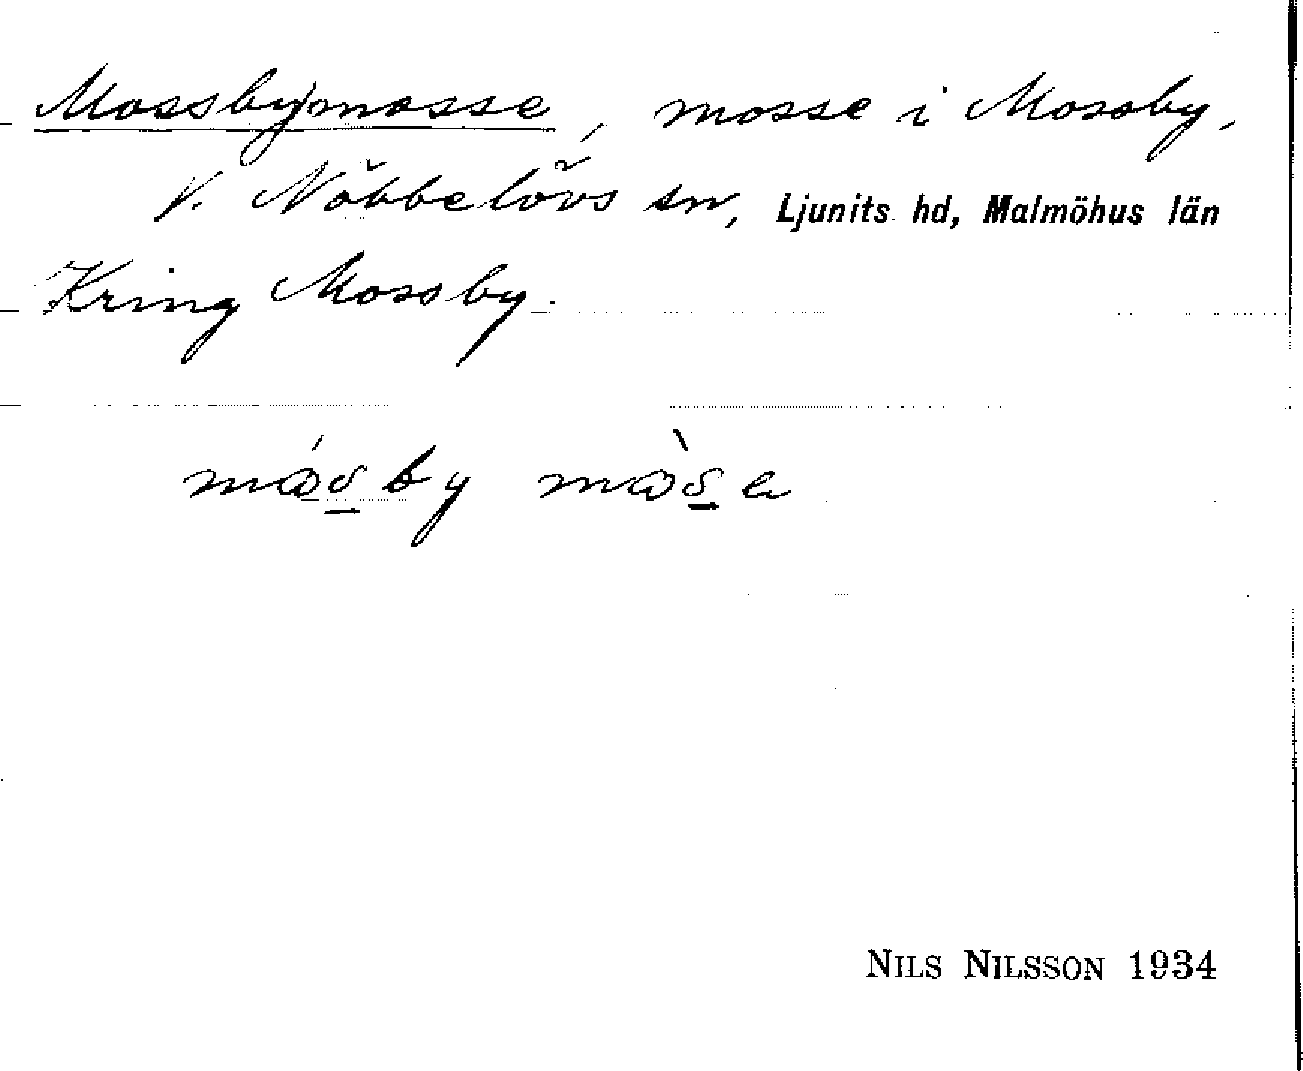 Mossbymosse, mosse i Mossby,
V. Nöbbelövs sn, Ljunits hd, Malmöhus län
Kring Mossby.
NILS NILSSON 1934